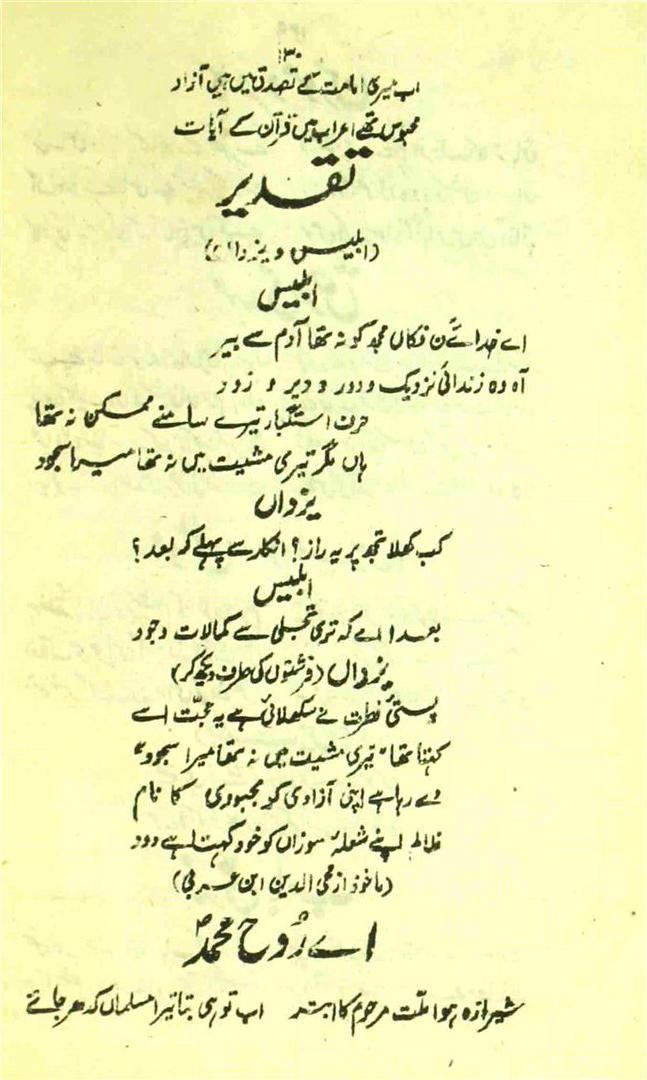 ۱۳۰
اب میری امامت کے تصدق میں ہیں آزاد
محبوس تھے اعراب میں قرآن کے آیات
تقدیر
(ابلیس و یزداں)
ابلیس
اے خدائے کن فکاں مجھ کو نہ تھا آدم سے بیر
آہ وہ زندانیٔ نزدیک و دور و دیر و زود
حرف استکبار تیرے سامنے ممکن نہ تھا
ہاں مگر تیری مشیت میں نہ تھا میرا سجود
یزداں
کب کھلا تجھ پر یہ راز؟ انکار سے پہلے کہ بعد؟
ابلیس
بعد اے کہ تری تجلی سے کمالات وجود
یزداں (فرشتوں کی طرف دیکھ کر)
پستیٔ فطرت نے سکھلائی ہے یہ حجت اسے
کہتا تھا "تیری مشیت میں نہ تھا میرا سجود"
دے رہا ہے اپنی آزادی کو مجبوری کا نام
ظالم اپنے شعلۂ سوزاں کو خود کہتا ہے دود
(ماخوذ از محی الدین ابن عربی)
اے رُوح محمدؐ
شیرازہ ہوا ملّت مرحوم کا ابتر اب تو ہی بتا تیرا مسلماں کدھر جائے